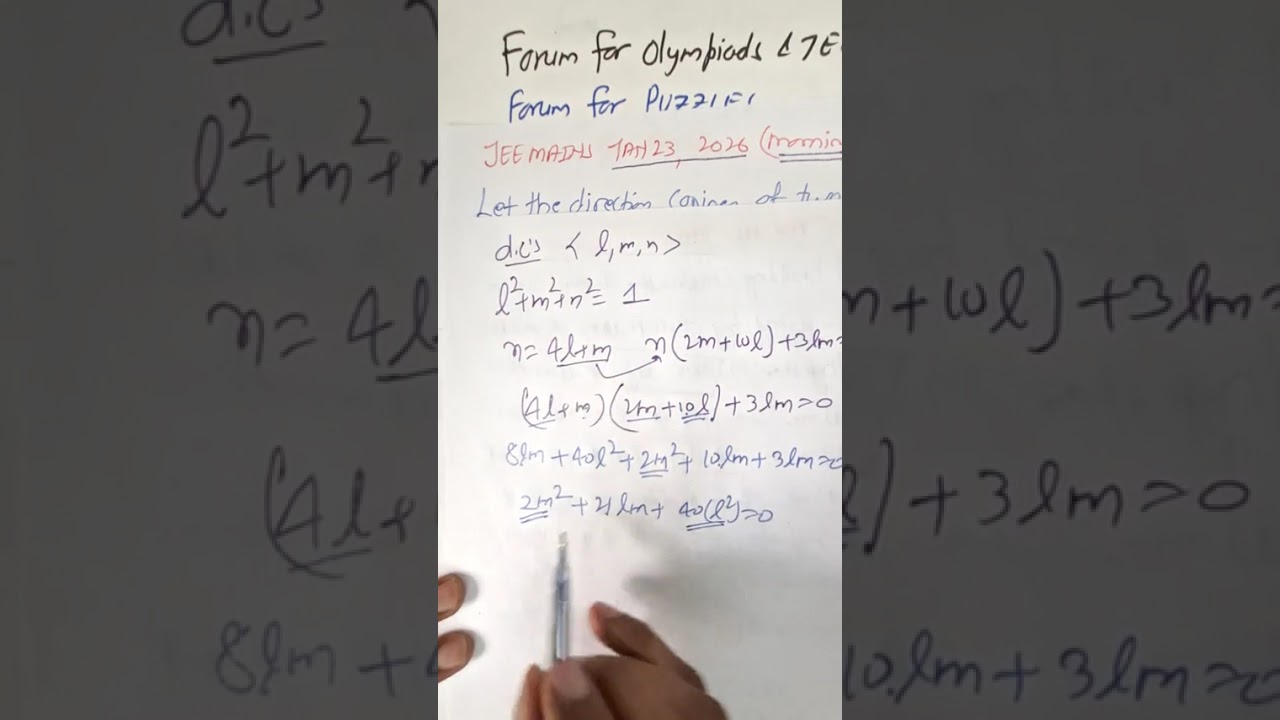 Forum for Olympiads & JE
Forum for PUZZLES
JEE MAINS JAN 23, 2026 (mornin
Let the direction cosines of
d.c's < l, m, n >
l²+m²+n² = 1
n = 4l+m n(2m+10l)+3lm=
(4l+m)(2m+10l)+3lm=0
8lm+40l²+2m²+10lm+3lm=0
2m²+21lm+40(l²)=0